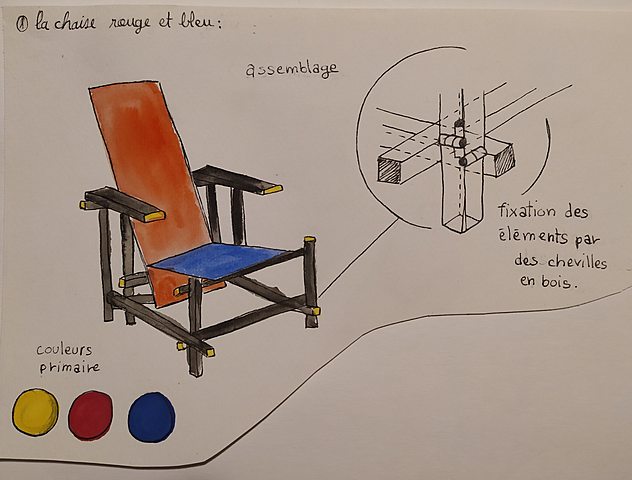 ① la chaise rouge et bleu :
assemblage
fixation des
éléments par
des chevilles
en bois.
couleurs
primaire